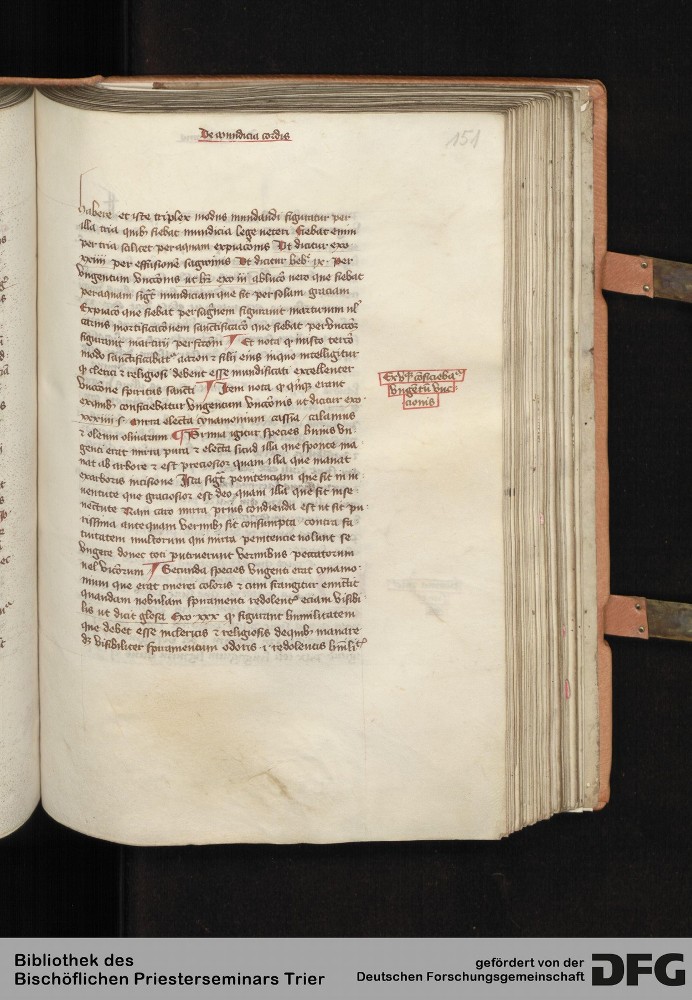 De mundicia cordis
151
habere et iste triplex modus mundandi figuratur per
illa tria quibꝫ fiebat mundicia lege veteri fiebat enim
per tria scilicet per aquam expiacionis Vt dicitur exo
xxiiii per effusionē sagwinis Vt dicitur heb ix per
vngentum vnccionis ut exo in ablucō vero que fiebat
per aquam sigᵗ mundiciam que fit per solam graciam
Expiacō que fiebat per sagnem figurant martirum vl
carnis mortificacōnem sanctificacō que fiebat per vnccōz
figurant Et nota ꝙ misto tercō
modo sanctificabātʳ aaron ⁊ filij eius in quo intelligitur
ꝙ clerici ⁊ religiosi debent esse mundificati excellenter
vnccōne spiritus sancti Item nota ꝙ quinqꝫ erant
ex quibꝫ conficiebatur vngentum vnccōnis ut dicitur exo
mirra electa cynamonium cassia calamus
⁊ oleum oliuarum Prima igitur species huius vn
genti erat mirra pura ⁊ electa sicud illa que sponte ma
nat ab arbore ⁊ est preciosior quam illa que manat
ex arboris incisione Ista sigᵗ penitenciam que fit in iu
uentute que graciosior est deo quam illa que fit in se
nectute Nam caro mirra prius condienda est ut sit pu
rissima antequam vermibꝫ sit consumpta contra fa
tuitatem multorum qui mirra penitencie nolunt se
vngere donec toti putruerunt vermibus peccatorum
vel viciorum Secunda species vngenti erat cynamo
mum que erat cinerei coloris ⁊ cum frangitur emittit
quandam nebulam spiramenti redolentē eciam visibi
lis ut dicit glosa Exo xxx ꝙ figurant humilitatem
que debet esse in clericis ⁊ religiosis de quibꝫ manare
dʒ visibiliter spiramentum odoris i redolencis humilitᵉ
Ex vꝫ cōficiebaᵗ
vngētū vnc
cionis
Bibliothek des
Bischöflichen Priesterseminars Trier
gefördert von der
Deutschen Forschungsgemeinschaft
DFG